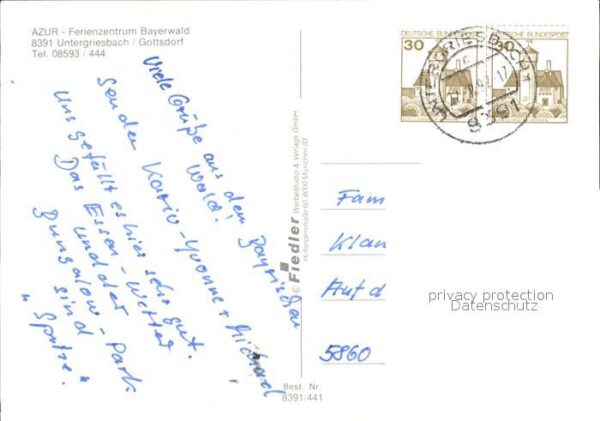 AZUR - Ferienzentrum Bayerwald
8391 Untergriesbach / Gottsdorf
Tel. 08593 / 444
Viele Grüße aus dem Bayrischen
Wald!
senden Karin-Yvonne + Michael
Uns gefällt es hier sehr gut.
Das Essen - Wetter
und der
Bungalow - Park
sind
"Spitze."
© Fiedler Werbestudio & Verlags GmbH
8000 München
Best. Nr
8391/441
DEUTSCHE BUNDESPOST DEUTSCHE BUNDESPOST
30 30
UNTERGRIESB
8391
Fam
Klan
Auf d
5860
privacy protection
Datenschutz